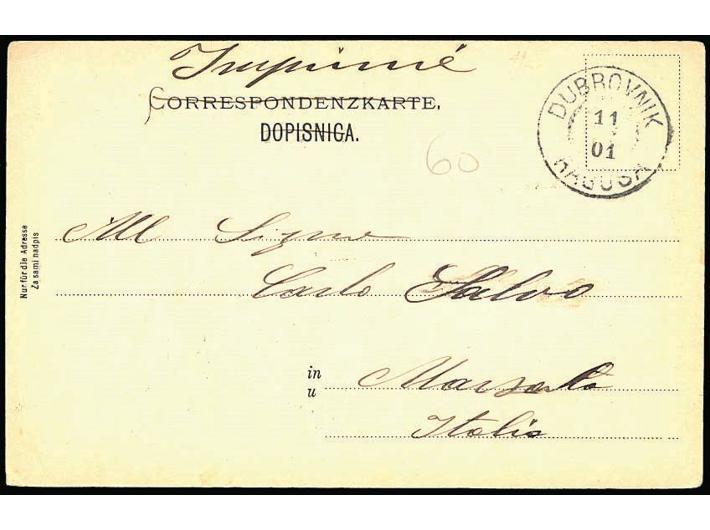 Imprimé
CORRESPONDENZKARTE.
DOPISNICA.
DUBROVNIK
11
01
RAGUSA
60
All Signor
Carlo Salvo
in
u
Marsala
Italia
Nur für die Adresse
Za sami nadpis